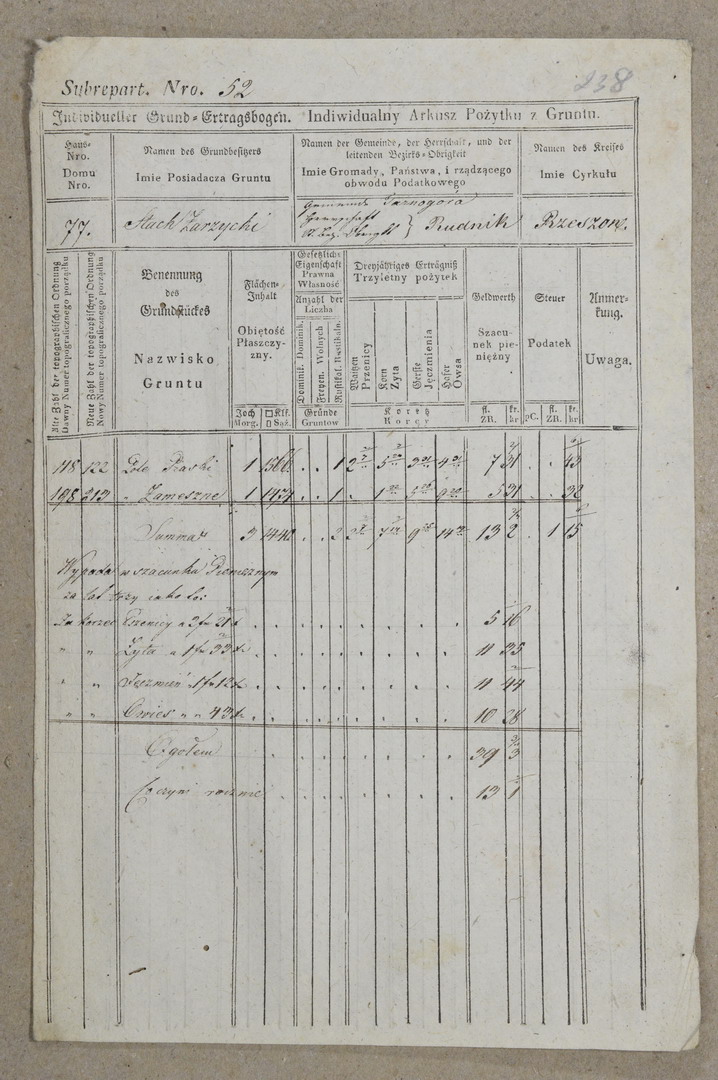 238
Subrepart. Nro. 52
Individueller Grund-Ertragsbogen. Indiwidualny Arkusz Pożytku z Gruntu.
Haus-Nro.
Domu Nro.
Namen des Grundbesitzers
Imie Posiadacza Gruntu
Namen der Gemeinde, der Herrschaft, und der
leitenden Bezirks-Obrigkeit
Imie Gromady, Państwa, i rządzącego
obwodu Podatkowego
Namen des Kreises
Imie Cyrkułu
77.
Stach Zarzycki
Gemeinde Tarnogora
Herrschaft
} Rudnik
Rzeszow.
Alte Zahl der topographischen Ordnung
Dawny Numer topograficznego porządku
Neue Zahl der topographischen Ordnung
Nowy Numer topograficznego porządku
Benennung
des
Grundstückes
Nazwisko
Gruntu
Flächen-
Inhalt
Objętość
Płaszczyzny.
Joch
Morg.
□Klf.
□ Sąż.
Gesetzliche
Eigenschaft
Prawna
Własność
Anzahl der
Liczba
Dominik. Dominik.
Freyen. Wolnych
Rustikal. Rustikaln.
Gründe
Gruntow
Dreyjähriges Erträgniß
Trzyletny pożytek
Waitzen
Przenicy
Korn
Zyta
Gerste
Jęczmienia
Hafer
Owsa
Koretz
Korcy
Geldwerth
Szacu-
nek pie-
niężny
fl.
ZR.
kr.
kr
Steuer
Podatek
pC.
fl.
ZR.
kr.
kr
Anmer-
kung.
Uwaga.
118 122 Pole Piaski 1 1566 . . 1 7 31 . . 43
198 213 " Zameszne 1 1474 . . 1 5 31 . . 32
Summa 3 1440 . . 2 13 2 . 1 15
Wypada w szacunku Pieniężnym
za lat trzy jako to:
Za korzec Pszenicy a 2 fr 21 x 5 16
" " Zyta a 1 fr 33 x 11 35
" " Jęczmień a 1 fr 12 x 11 44
" " Owies " " 43 x 10 28
Ogołem 39 3
Co czyni rocznie 13 1